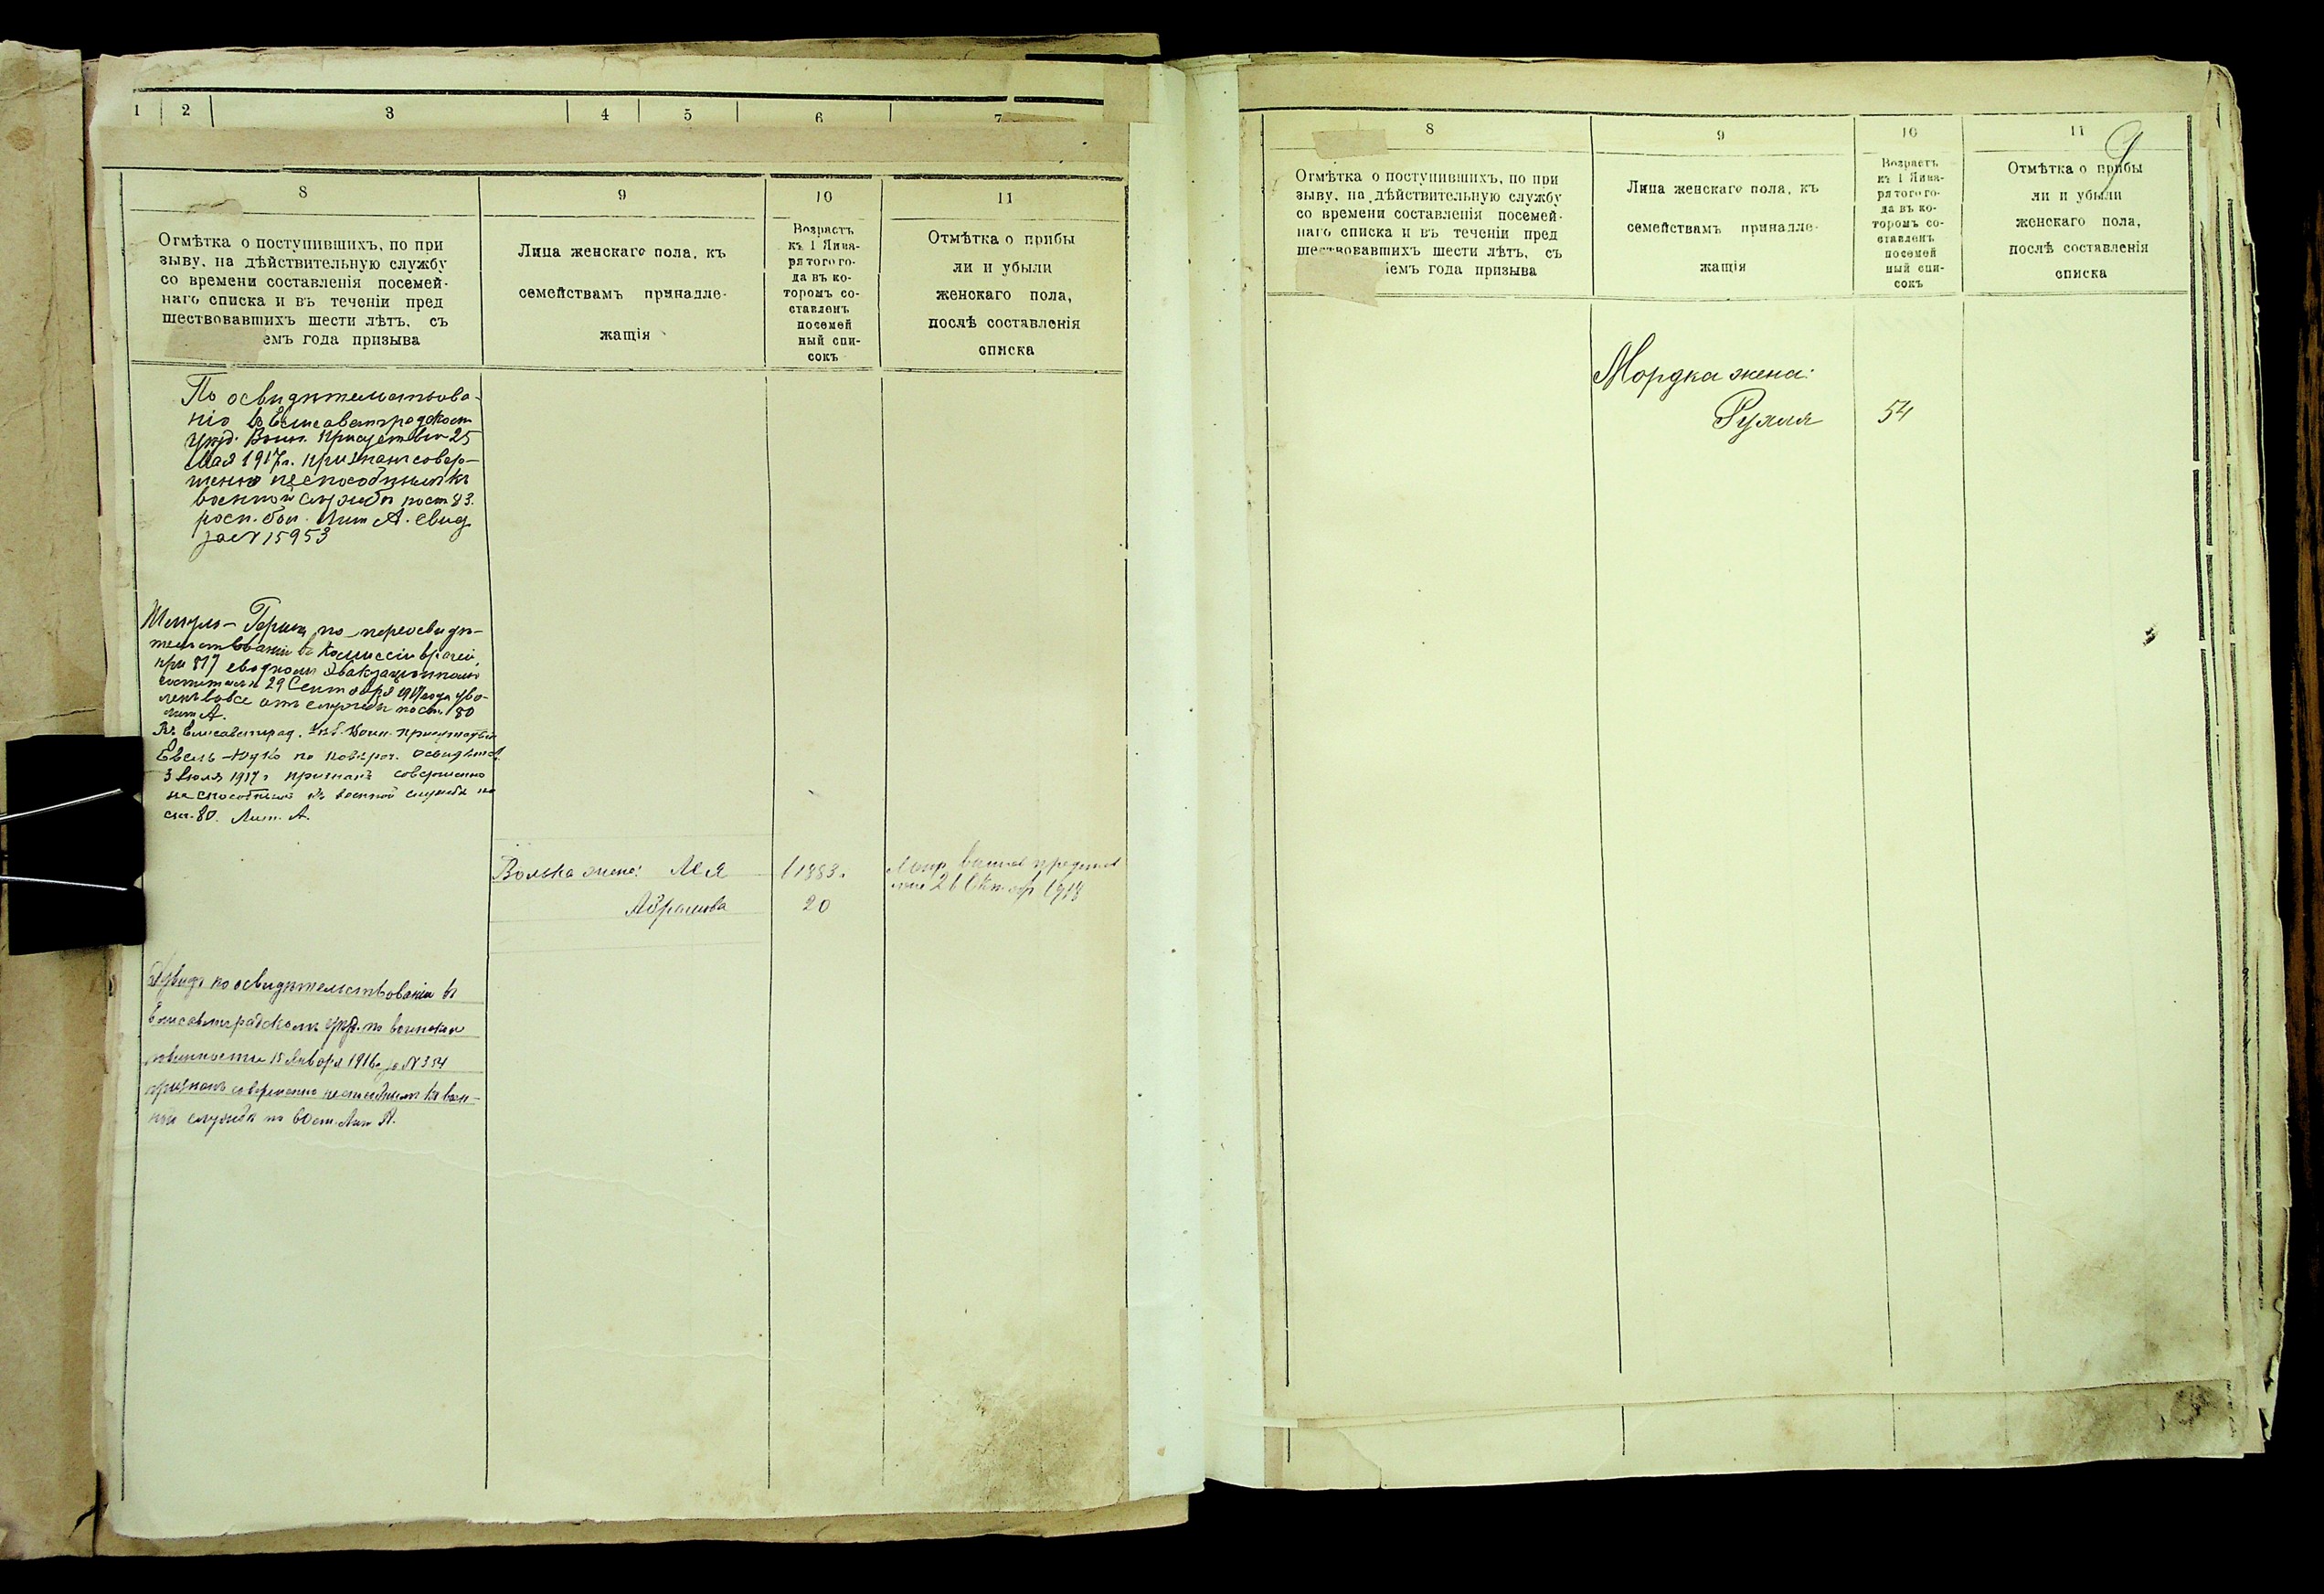 1 2 3 4 5 6 7
8 9 10 11
Отмѣтка о поступившихъ, по при
зыву, на дѣйствительную службу
со времени составленія посемей-
наго списка и въ теченіи пред
шествовавшихъ шести лѣтъ, съ
емъ года призыва
Лица женскаго пола, къ
семействамъ принадле-
жащія
Возрастъ
къ 1 Янва-
ря того го-
да въ ко-
торомъ со-
ставленъ
посемей
ный спи-
сокъ
Отмѣтка о прибы
ли и убыли
женскаго пола,
послѣ составленія
списка
По освидѣтельствова-
нію въ Елисаветградском
уѣзд. Воин. присутствіи 25
Мая 1917 г. признанъ совер-
шенно неспособнымъ къ
военной службѣ по ст 83.
росп. бол. Лит А. свид
за № 15953
по переосвидѣ-
тельствованіи въ Комиссіи врачей,
при 817 сводномъ Эвакуаціонномъ
госпиталѣ 29 Сентября 1917 года уво-
ленъ вовсе отъ службы по ст. 80
лит А.
Въ Елисаветград. Уѣзд. Воин. присутствіи
по повѣроч. освидѣт.
3 Іюля 1917 г признанъ совершенно
не способнымъ къ военной службѣ по
ст. 80. Лит. А.
Волька жена: Лея 1883.
Абрамова 20
21 Октяб 1918
по освидѣтельствованіи въ
Елисаветградскомъ уѣзд. по воинской
повинности 15 Января 1916 г за № 354
признанъ совершенно неспособнымъ къ воен-
ной службѣ по ст. Лит А.
8 9 10 11
9
Отмѣтка о поступившихъ, по при
зыву, на дѣйствительную службу
со времени составленія посемей-
наго списка и въ теченіи пред
шествовавшихъ шести лѣтъ, съ
іемъ года призыва
Лица женскаго пола, къ
семействамъ принадле-
жащія
Возрастъ
къ 1 Янва-
ря того го-
да въ ко-
торомъ со-
ставленъ
посемей
ный спи-
сокъ
Отмѣтка о прибы
ли и убыли
женскаго пола,
послѣ составленія
списка
Мордка жена:
Рухля 54